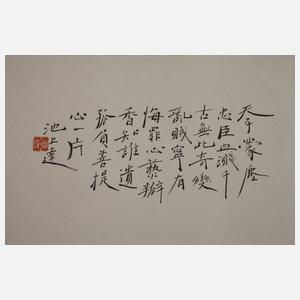 天子蒙塵
忠臣血濺千
古無此奇變
亂賊寧有
悔罪心爇瓣
香知誰遺
孤負菩提
心一片
池上達